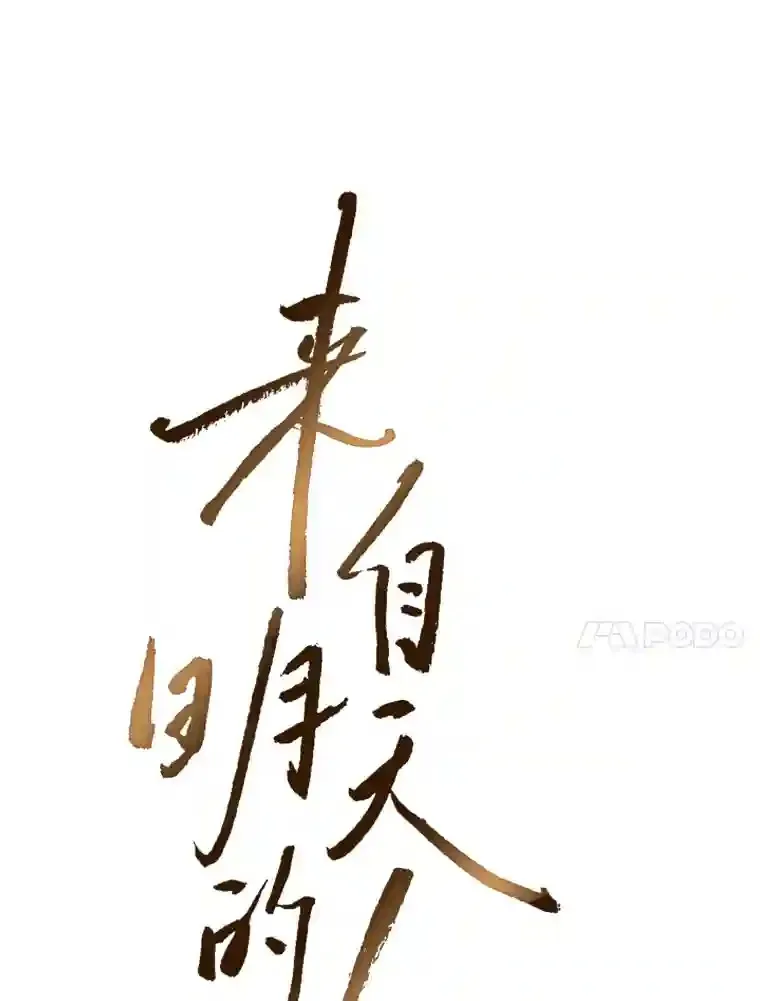 来自明天的
PODO